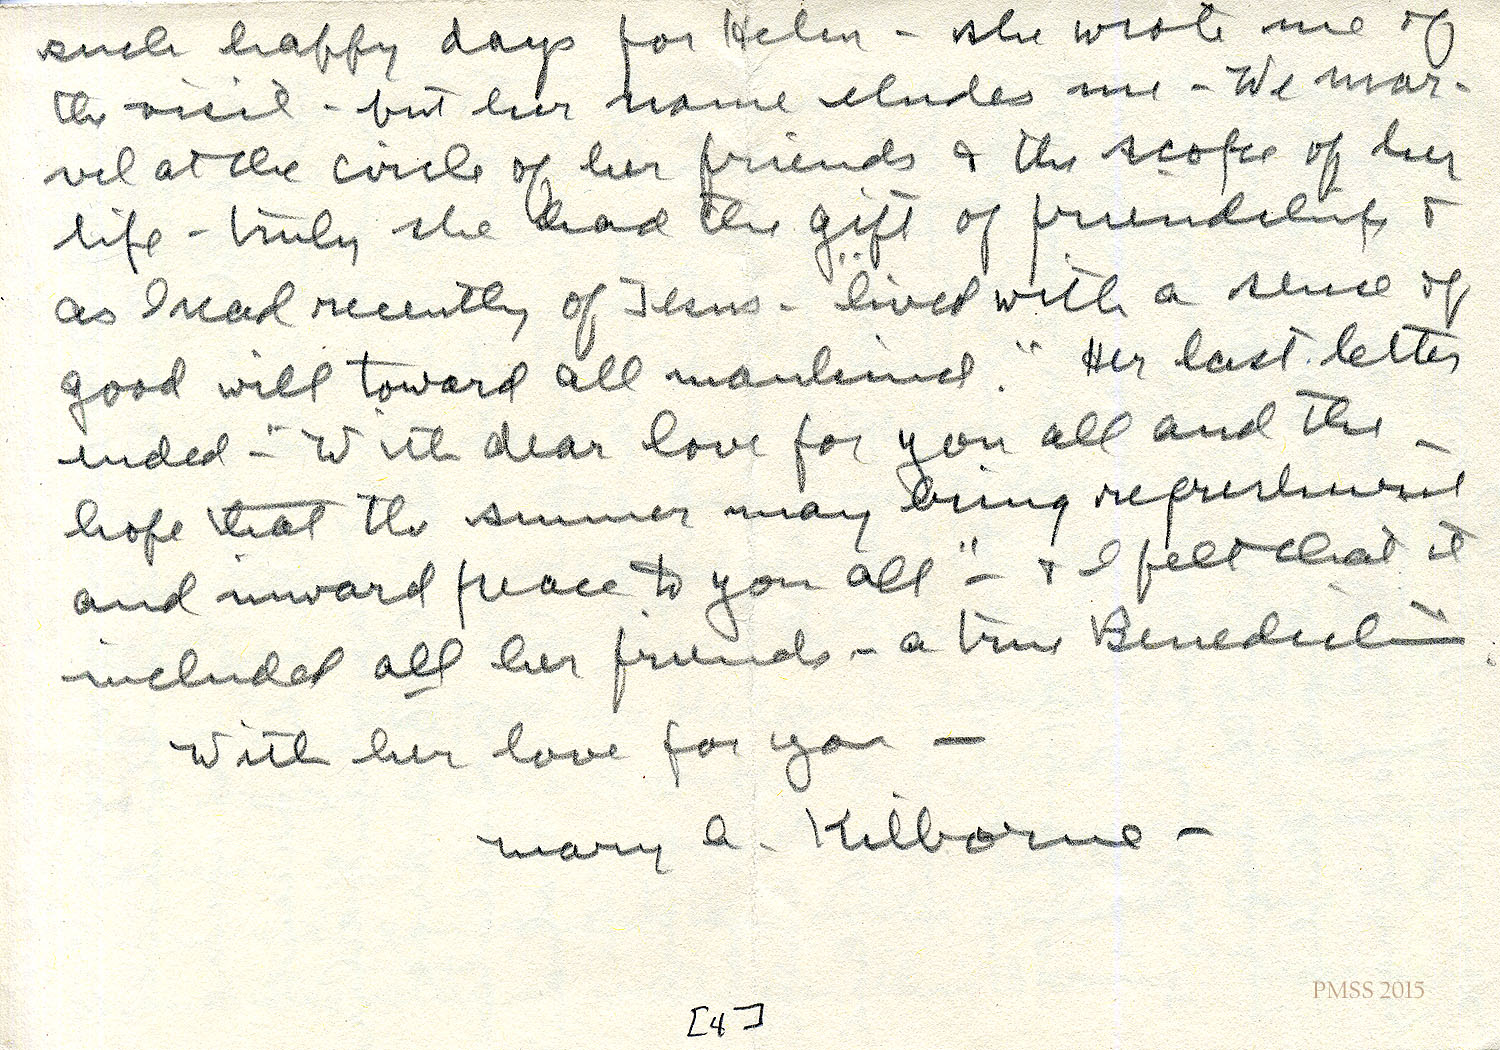 such happy days for Helen - she wrote me of
the visit - but her name eludes me - We mar-
vel at the circle of her friends & the scope of her
life - truly she had the gift of friendship &
as I read recently of Jesus - "lived with a sense of
good will toward all mankind." Her last letter
ended - "With dear love for you all and the -
hope that the summer may bring refreshment
and inward peace to you all" - & I felt that it
included all her friends - a true Benediction.
With her love for you -
Mary A. Kilborne -
[4]
PMSS 2015